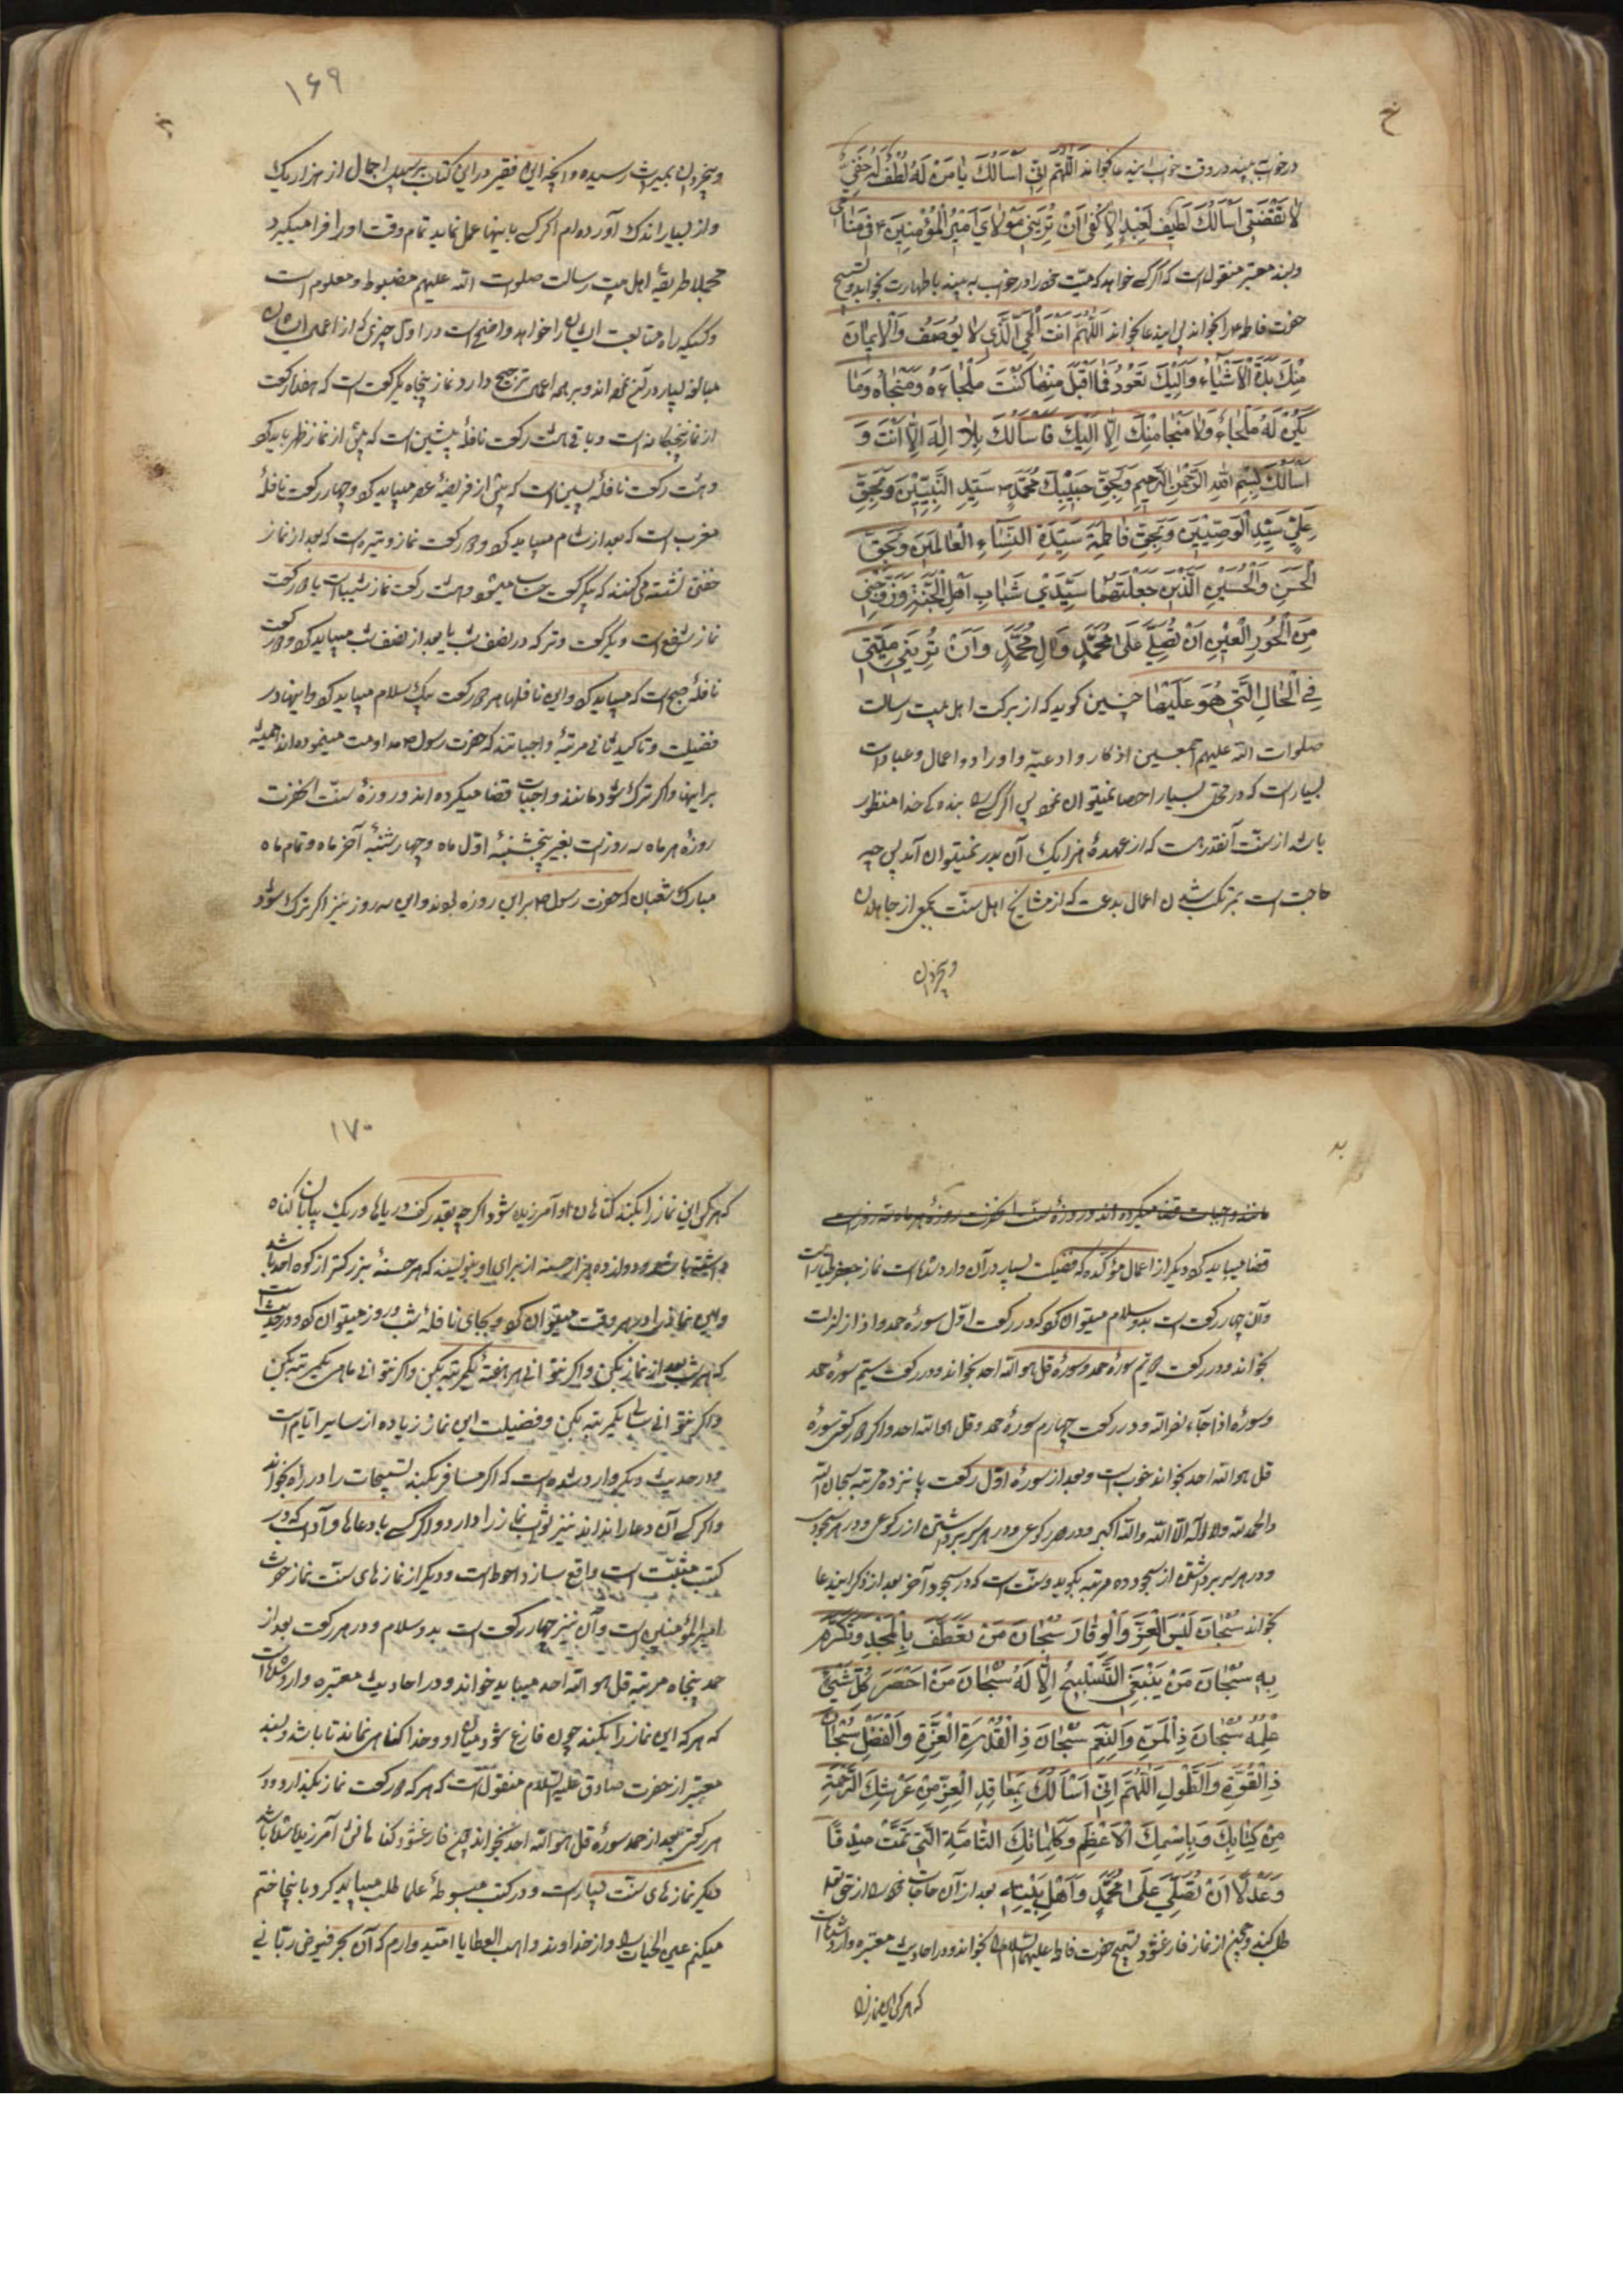 در خواب ببیند در وقت خواب ایندعا بخواند اَللّهُمَّ اِنّی اَسْأَلُكَ یا مَنْ لَهُ لُطْفٌ خَفِیٌّ
لا یَنْقَضی اَسْأَلُكَ لَطیف لِعَبْدِهِ اِلّا كَفی اَنْ تُرِیَنی مَوْلایَ اَمیرَ الْمُؤْمِنینَ ع فی مَنامی
وبسند معتبر منقولست که اگر کسی خواهد که میّت خود را در خواب به بیند با طهارت بخوابد و تسبیح
حضرت فاطمه ع را بخواند پس اینه دعا بخواند اَللّهُمَّ اَنْتَ الْحَیُّ الَّذی لا یُوصَفُ وَالْایمانُ
مِنْكَ بَدَاَتِ الْاَشْیاءُ وَاِلَیْكَ تَعُودُ فَما اَقْبَلَ مِنْها كُنْتَ مَلْجَاءَهُ وَمَنْجاهُ وَما
یَكُنْ لَهُ مَلْجَاءٌ وَلا مَنْجا مِنْكَ اِلّا اِلَیْكَ فَاَسْأَلُكَ بِلا اِلهَ اِلّا اَنْتَ وَ
اَسْأَلُكَ بِبِسْمِ اللهِ الرَّحْمنِ الرَّحیمِ وَبِحَقِّ حَبیبِكَ مُحَمَّدٍ ص سَیِّدِ النَّبِیّینَ وَبِحَقِّ
عَلِیٍّ سَیِّدِ الْوَصِیّینَ وَبِحَقِّ فاطِمَةَ سَیِّدَةِ النِّساءِ الْعالَمینَ وَبِحَقِّ
الْحَسَنِ وَالْحُسَیْنِ الَّذَیْنِ جَعَلْتَهُما سَیِّدَیْ شَبابِ اَهْلِ الْجَنَّةِ وَزَوِّجْنی
مِنَ الْحُورِ الْعینِ اَنْ تُصَلِّیَ عَلی مُحَمَّدٍ وَآلِ مُحَمَّدٍ وَاَنْ تُرِیَنی مَیِّتی
فِی الْحالِ الَّتی هُوَ عَلَیْها چنین گوید که از برکت اهل بیت رسالت
صلوات الله علیهم اجمعین اذکار و ادعیّه و اوراد و اعمال و عبادات
بسیار است که در محلّی بسیار احصا نمیتوان نمود پس اگر کسی را بندهٔ خدا منظور
باشد از سنّت آنقدر هست که از عهدهٔ هزاریک آن بدر نمیتوان آمد پس چه
حاجتست بمرتکب شدن اعمال بدعت که از مشایخ اهل سنّت بجمعی از جاهلان
و بیخردان
۱۶۹
و بیخردان بمیراث رسیده و آنچه این فقیر در این کتاب بر سبیل اجمال از هزار یک
و از بسیار اندک آورده ام اگر کسی باینها عمل نماید تمام وقت او را فرا میگیرد
مجملا طریقهٔ اهل بیت رسالت صلوات الله علیهم مضبوط و معلوم است
وکسیکه راه متابعت ایشان را خواهد واضح است در اوّل چیزی که از اعمال ایشان
مبالغه بسیار در آن نموده اند و بر همه اعمال ترجیح دارد نماز پنجاه یکرکعت است که هفده رکعت
از نماز پنجگانه است و باقی هشت رکعت نافلهٔ پیشین است که پیش از نماز ظهر باید کرد
و هشت رکعت نافلهٔ پسین است که پیش از فریضهٔ عصر میباید کرد و چهار رکعت نافلهٔ
مغرب است که بعد از شام میباید کرد و دو رکعت نماز وتیره است که بعد از نماز
خفتن نشسته می کنند که یکرکعت حساب میشود و هشت رکعت نماز شبست با دو رکعت
نماز شفع است و یکرکعت وتر که در نصف شب یا بعد از نصف شب میباید کرد و دو رکعت
نافلهٔ صبح است که میباید کرد و این نافلها هر دو رکعت بیک سلام میباید کرد و اینها در
فضیلت و تاکید ثانی مرتبهٔ واجباتند که حضرت رسول ص مداومت مینموده اند همیشه
بر اینها و اگر ترک شود مانند واجبات قضا میکرده اند و روزهٔ سنّت آنحضرت
روزهٔ هر ماه سه روز است بغیر پنجشنبهٔ اوّل ماه و چهارشنبهٔ آخر ماه و تمام ماه
مبارک شعبان که حضرت رسول ص بر این روزه بودند و این سه روز نیز اگر ترک شود
مانند واجبات قضا میکرده اند و روزهٔ سنّت آنحضرت روزهٔ هر ماه سه روز است
قضا میباید کرد و دیگر از اعمال مؤکّده که فضیلت بسیار در آن وارد شده است نماز جعفر طیّار است
و آن چهار رکعت است بدو سلام میتوان کرد که در رکعت اوّل سورهٔ حمد و اذا زلزلت
بخواند و در رکعت دویّم سورهٔ حمد و سورهٔ قل هو الله احد بخواند و در رکعت سیّم سورهٔ حمد
و سورهٔ اذا جاء نصر الله و در رکعت چهارم سورهٔ حمد و قل هو الله احد و اگر در هر رکعتی سورهٔ
قل هو الله احد بخواند خوبست و بعد از سورهٔ اوّل رکعت پانزده مرتبه سبحان الله
والحمد لله ولا اله الّا الله والله اکبر و در هر رکوعی و در هر سر برداشتن از رکوعی و در هر سجود
و در هر سر برداشتن از سجود ده مرتبه بگوید و سنّت است که در سجود آخر بعد از ذکر اینه دعا
بخواند سُبْحانَ مَنْ لَبِسَ الْعِزَّ وَالْوَقارَ سُبْحانَ مَنْ تَعَطَّفَ بِالْمَجْدِ وَتَكَرَّمَ
بِهِ سُبْحانَ مَنْ یَنْبَغِی التَّسْبیحُ اِلّا لَهُ سُبْحانَ مَنْ اَحْصَرَ كُلَّ شَیْءٍ
عِلْمُهُ سُبْحانَ ذِی الْمَنِّ وَالنِّعَمِ سُبْحانَ ذِی الْقُدْرَةِ الْعِزَّةِ وَالْفَضْلِ سُبْحانَ
ذِی الْقُوَّةِ وَالطَّوْلِ اَللّهُمَّ اِنّی اَسْأَلُكَ بِمَعاقِدِ الْعِزِّ مِنْ عَرْشِكَ الرَّحْمَةِ
مِنْ كِتابِكَ وَبِاسْمِكَ الْاَعْظَمِ وَكَلِماتِكَ التّامَّةِ الَّتی تَمَّتْ صِدْقًا
وَعَدْلًا اَنْ تُصَلِّیَ عَلی مُحَمَّدٍ وَاَهْلِ بَیْتِهِ بعد از آن حاجات خود را از حق تعالی
طلب کند و چون از نماز فارغ شود تسبیح حضرت فاطمه علیها السّلام را بخواند و در احادیث معتبره وارد شده است
که هر که این نماز را
۱۷۰
که هر که این نماز را بکند گناهان او آمرزیده شود اگر چه بقدر کف دریاها و ریک بیابان گناه
داشته باشد و دوازده هزار حسنه از برای او بنویسند که هر حسنهٔ بزرکتر از کوه احد باشد
و این نماز را در هر وقت میتوان کرد و بجای نافلهٔ شب و روز میتوان کرد و در حدیث است
که هر شب بعد از نماز بکن و اگر نتوانی هر هفتهٔ یکمرتبه بکن و اگر نتوانی ماهی یکمرتبه بکن
و اگر نتوانی سالی یکمرتبه بکن و فضیلت این نماز زیاده از سایر ایّام است
و در حدیث دیگر وارد شده است که اگر مسافر بکند تسبیحات را در راه بخواند
و اگر کسی آن دعا را نداند نیز ثواب نماز را دارد و اگر کسی با دعاها و آداب که در
کتب مثبت است واقع سازد احوط است و دیگر از نماز های سنّت نماز حضرت
امیر المؤمنین است و آن نیز چهار رکعت است بدو سلام و در هر رکعت بعد از
حمد پنجاه مرتبه قل هو الله احد میباید خواند و در احادیث معتبره وارد شده است
که هر که این نماز را بکند چون فارغ شود میان او و خدا گناهی نمانده باشد و بسند
معتبر از حضرت صادق علیه السّلام منقول است که هر که دو رکعت نماز بگذارد و در
هر رکعتی بعد از حمد سورهٔ قل هو الله احد بخواند چون فارغ شود گناهانش آمرزیده شده باشد
دیگر نماز های سنّت بسیار است و در کتب مبسوطهٔ علما طلب میباید کرد و باینجا ختم
میکنم عین الحیات را و از خداوند واهب العطایا امّید وارم که آن بحر فیوض ربّانی